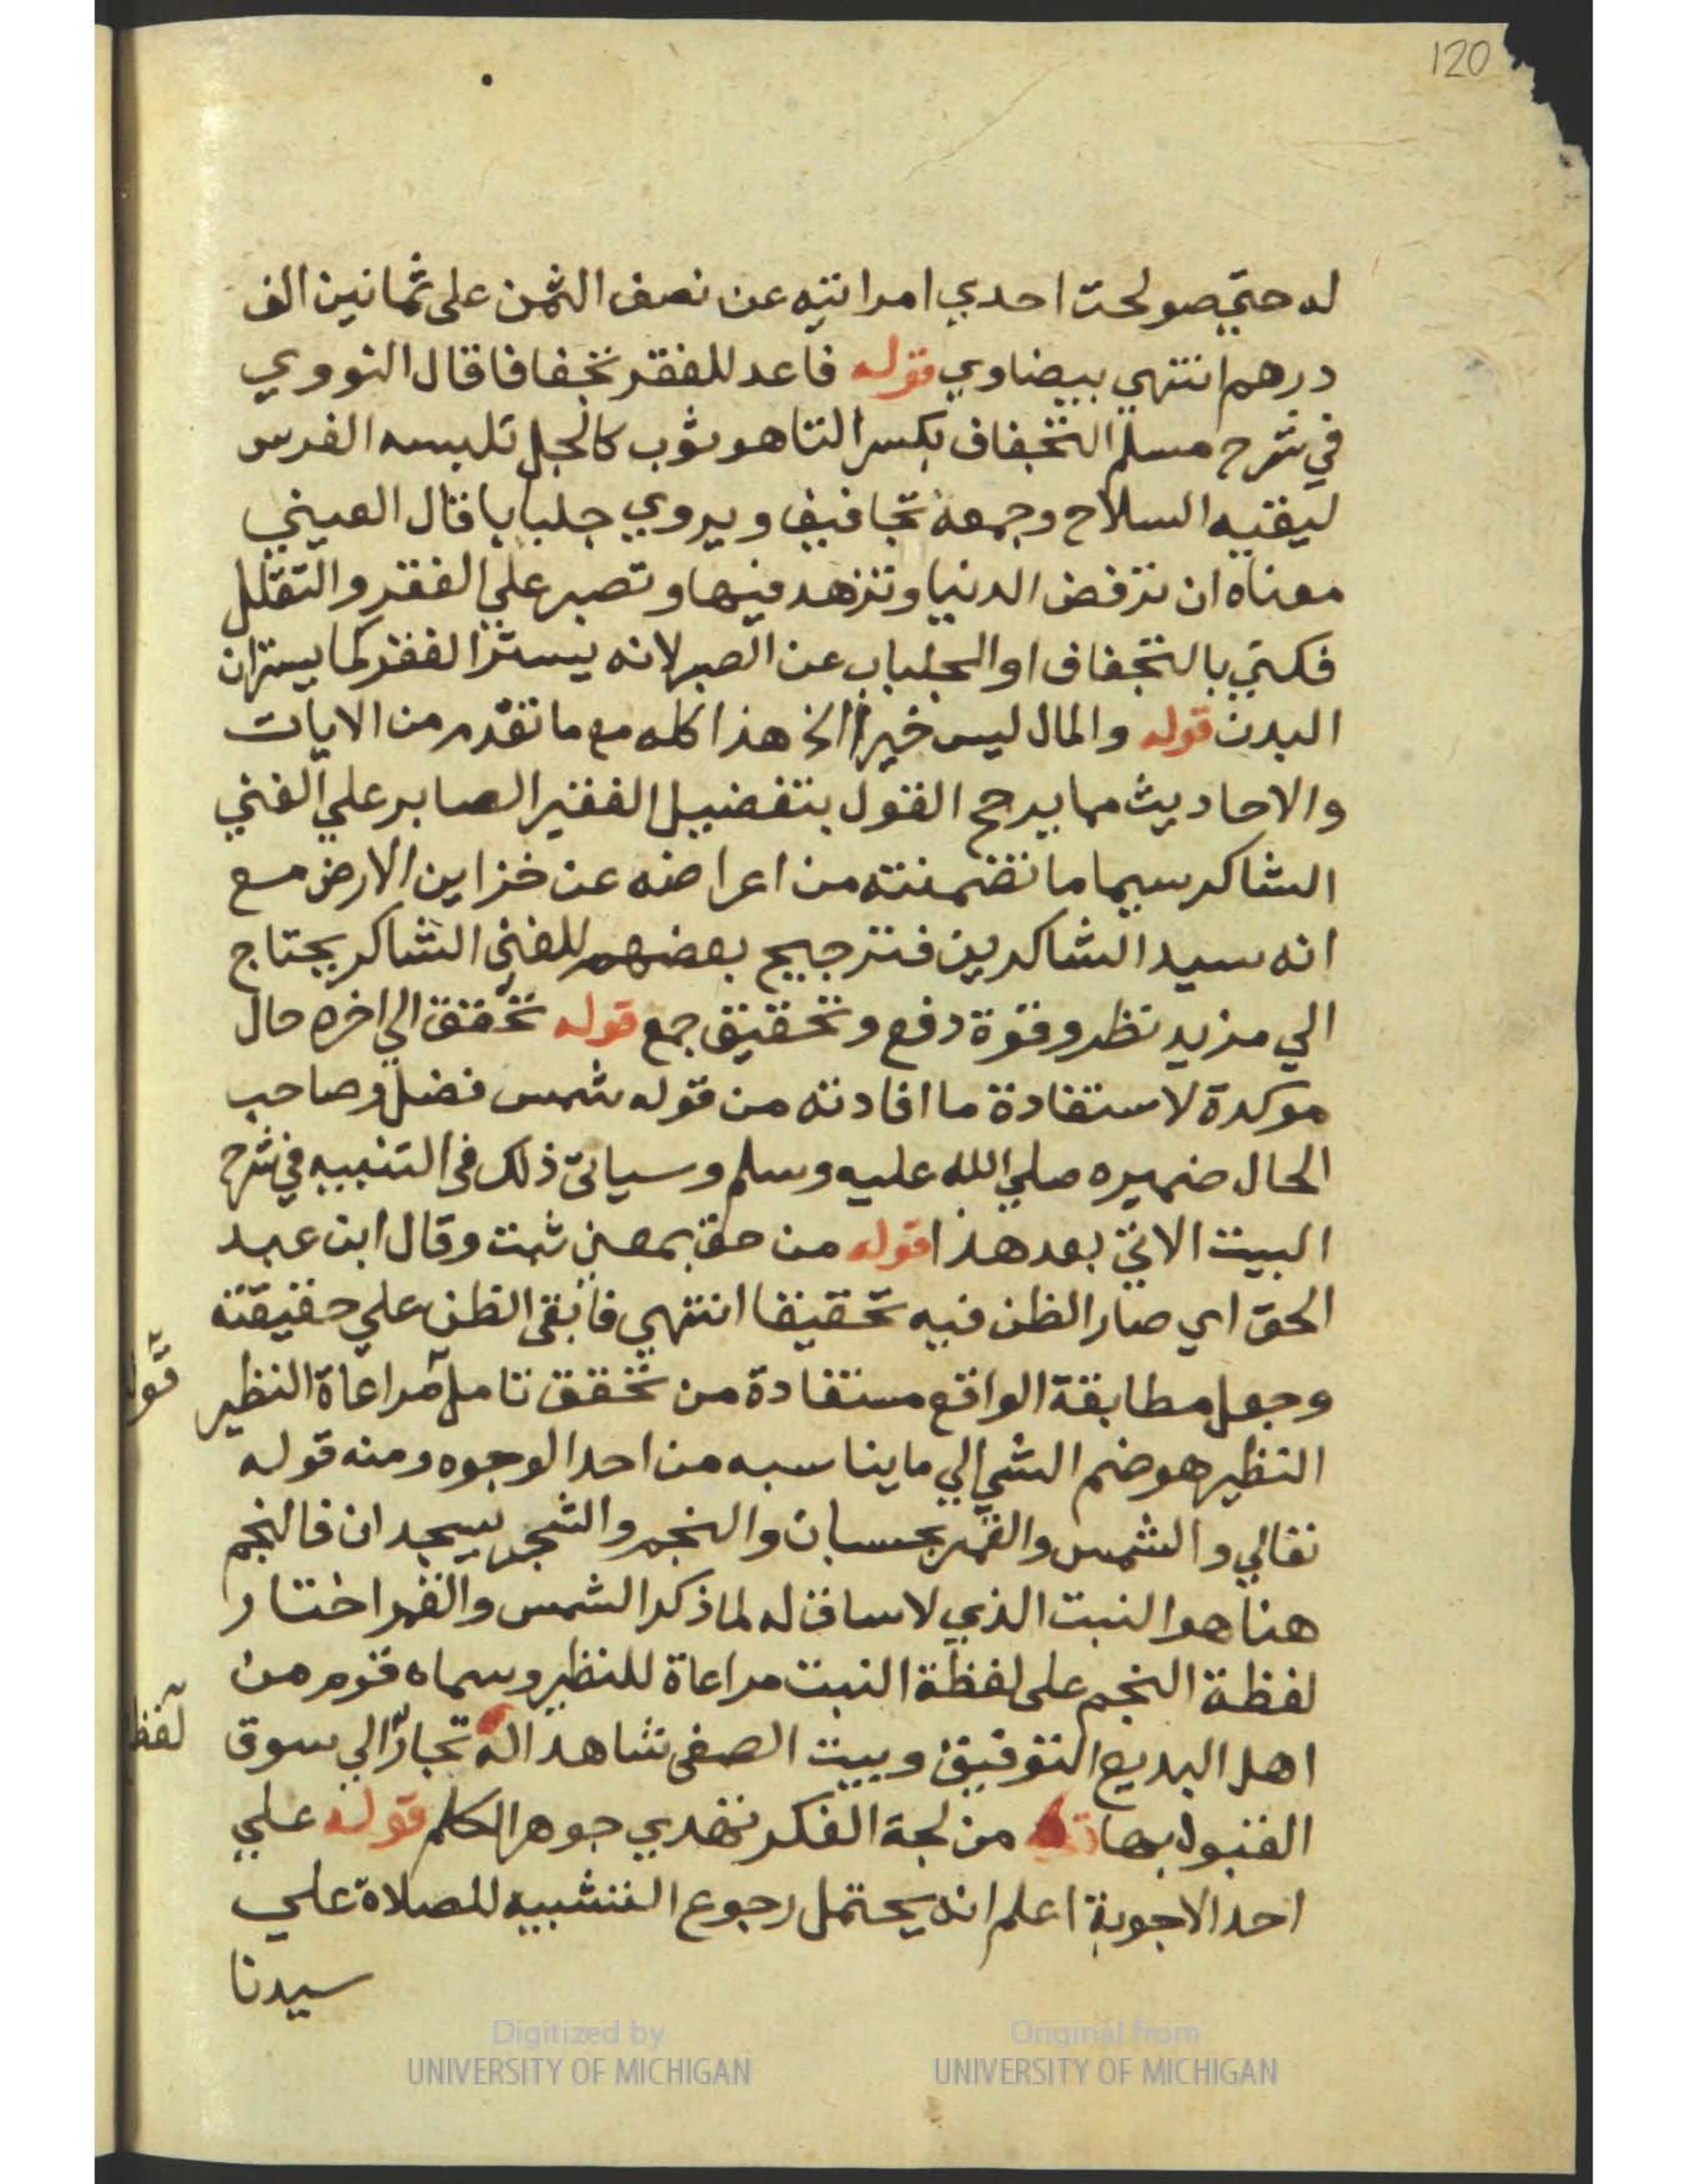 120
له حتي صولحت احدي امراتيه عن نصف الثمن على ثمانين الف
درهم انتهي بيضاوي قوله فاعد للفقر تجفافا قال النووي
في شرح مسلم التجفاف بكسر التا هو ثوب كالجل تلبسه الفرس
ليقيه السلاح وجمعه تجافيف ويروي جلبابا قال العيني
معناه ان ترفض الدنيا وتزهد فيها وتصبر علي الفقر والتقلل
فكني بالتجفاف او الجلباب عن الصبر لانه يستر الفقر كما يستران
البدن قوله والمال ليس خيرا الخ هذا كله مع ما تقدم من الايات
والاحاديث مما يرجح القول بتفضيل الفقير الصابر علي الغني
الشاكر سيما ما تضمنته من اعراضه عن خزاين الارض مع
انه سيد الشاكرين فترجيح بعضهم للغني الشاكر يحتاج
الي مزيد نظر وقوة دفع وتحقيق جمع قوله تحقق الي اخره حال
موكدة لاستفادة ما افادته من قوله شمس فضل وصاحب
الحال ضميره صلي الله عليه وسلم وسياتي ذلك في التنبيه في شرح
البيت الاتي بعد هذا قوله من حق بمعني ثبت وقال ابن عبد
الحق اي صار الظن فيه تحقيقا انتهي فابقي الظن علي حقيقته
وجعل مطابقة الواقع مستفادة من تحقق تامل مراعاة النظير
قوله
النظير هو ضم الشي الي ما يناسبه من احد الوجوه ومنه قوله
تعالي والشمس والقمر بحسبان والنجم والشجر يسجدان فالنجم
هنا هو النبت الذي لا ساق له لما ذكر الشمس والقمر اختار
لفظة النجم على لفظة النبت مراعاة للنظير وسماه قوم من
اهل البديع التوفيق وبيت الصفي شاهد اله تجار الي سوق
لفظ
القبول بها من لجة الفكر تهدي جوهر الكلم قوله علي
احد الاجوبة اعلم انه يحتمل رجوع التشبيه للصلاة علي
سيدنا
Digitized by
UNIVERSITY OF MICHIGAN
Original from
UNIVERSITY OF MICHIGAN